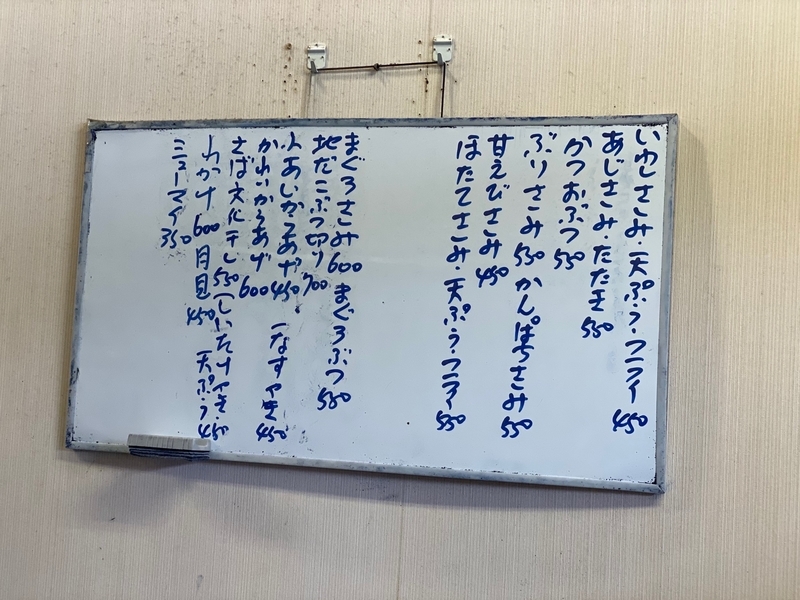 いわしさしみ・天ぷら・フライ 450
あじさしみ・たたき 550
かつおぶつ 550
ぶりさしみ 550 かんぱちさしみ 550
甘えびさしみ 450
ほたてさしみ・天ぷら・フライ 550
まぐろさしみ 600 まぐろぶつ 550
地だこぶつ切り 700
小あじからあげ 450 なすやき 450
かれいからあげ 600
さば文化干し 550 しいたけやき・天ぷら 450
山かけ 600 月見 450
シューマイ 350